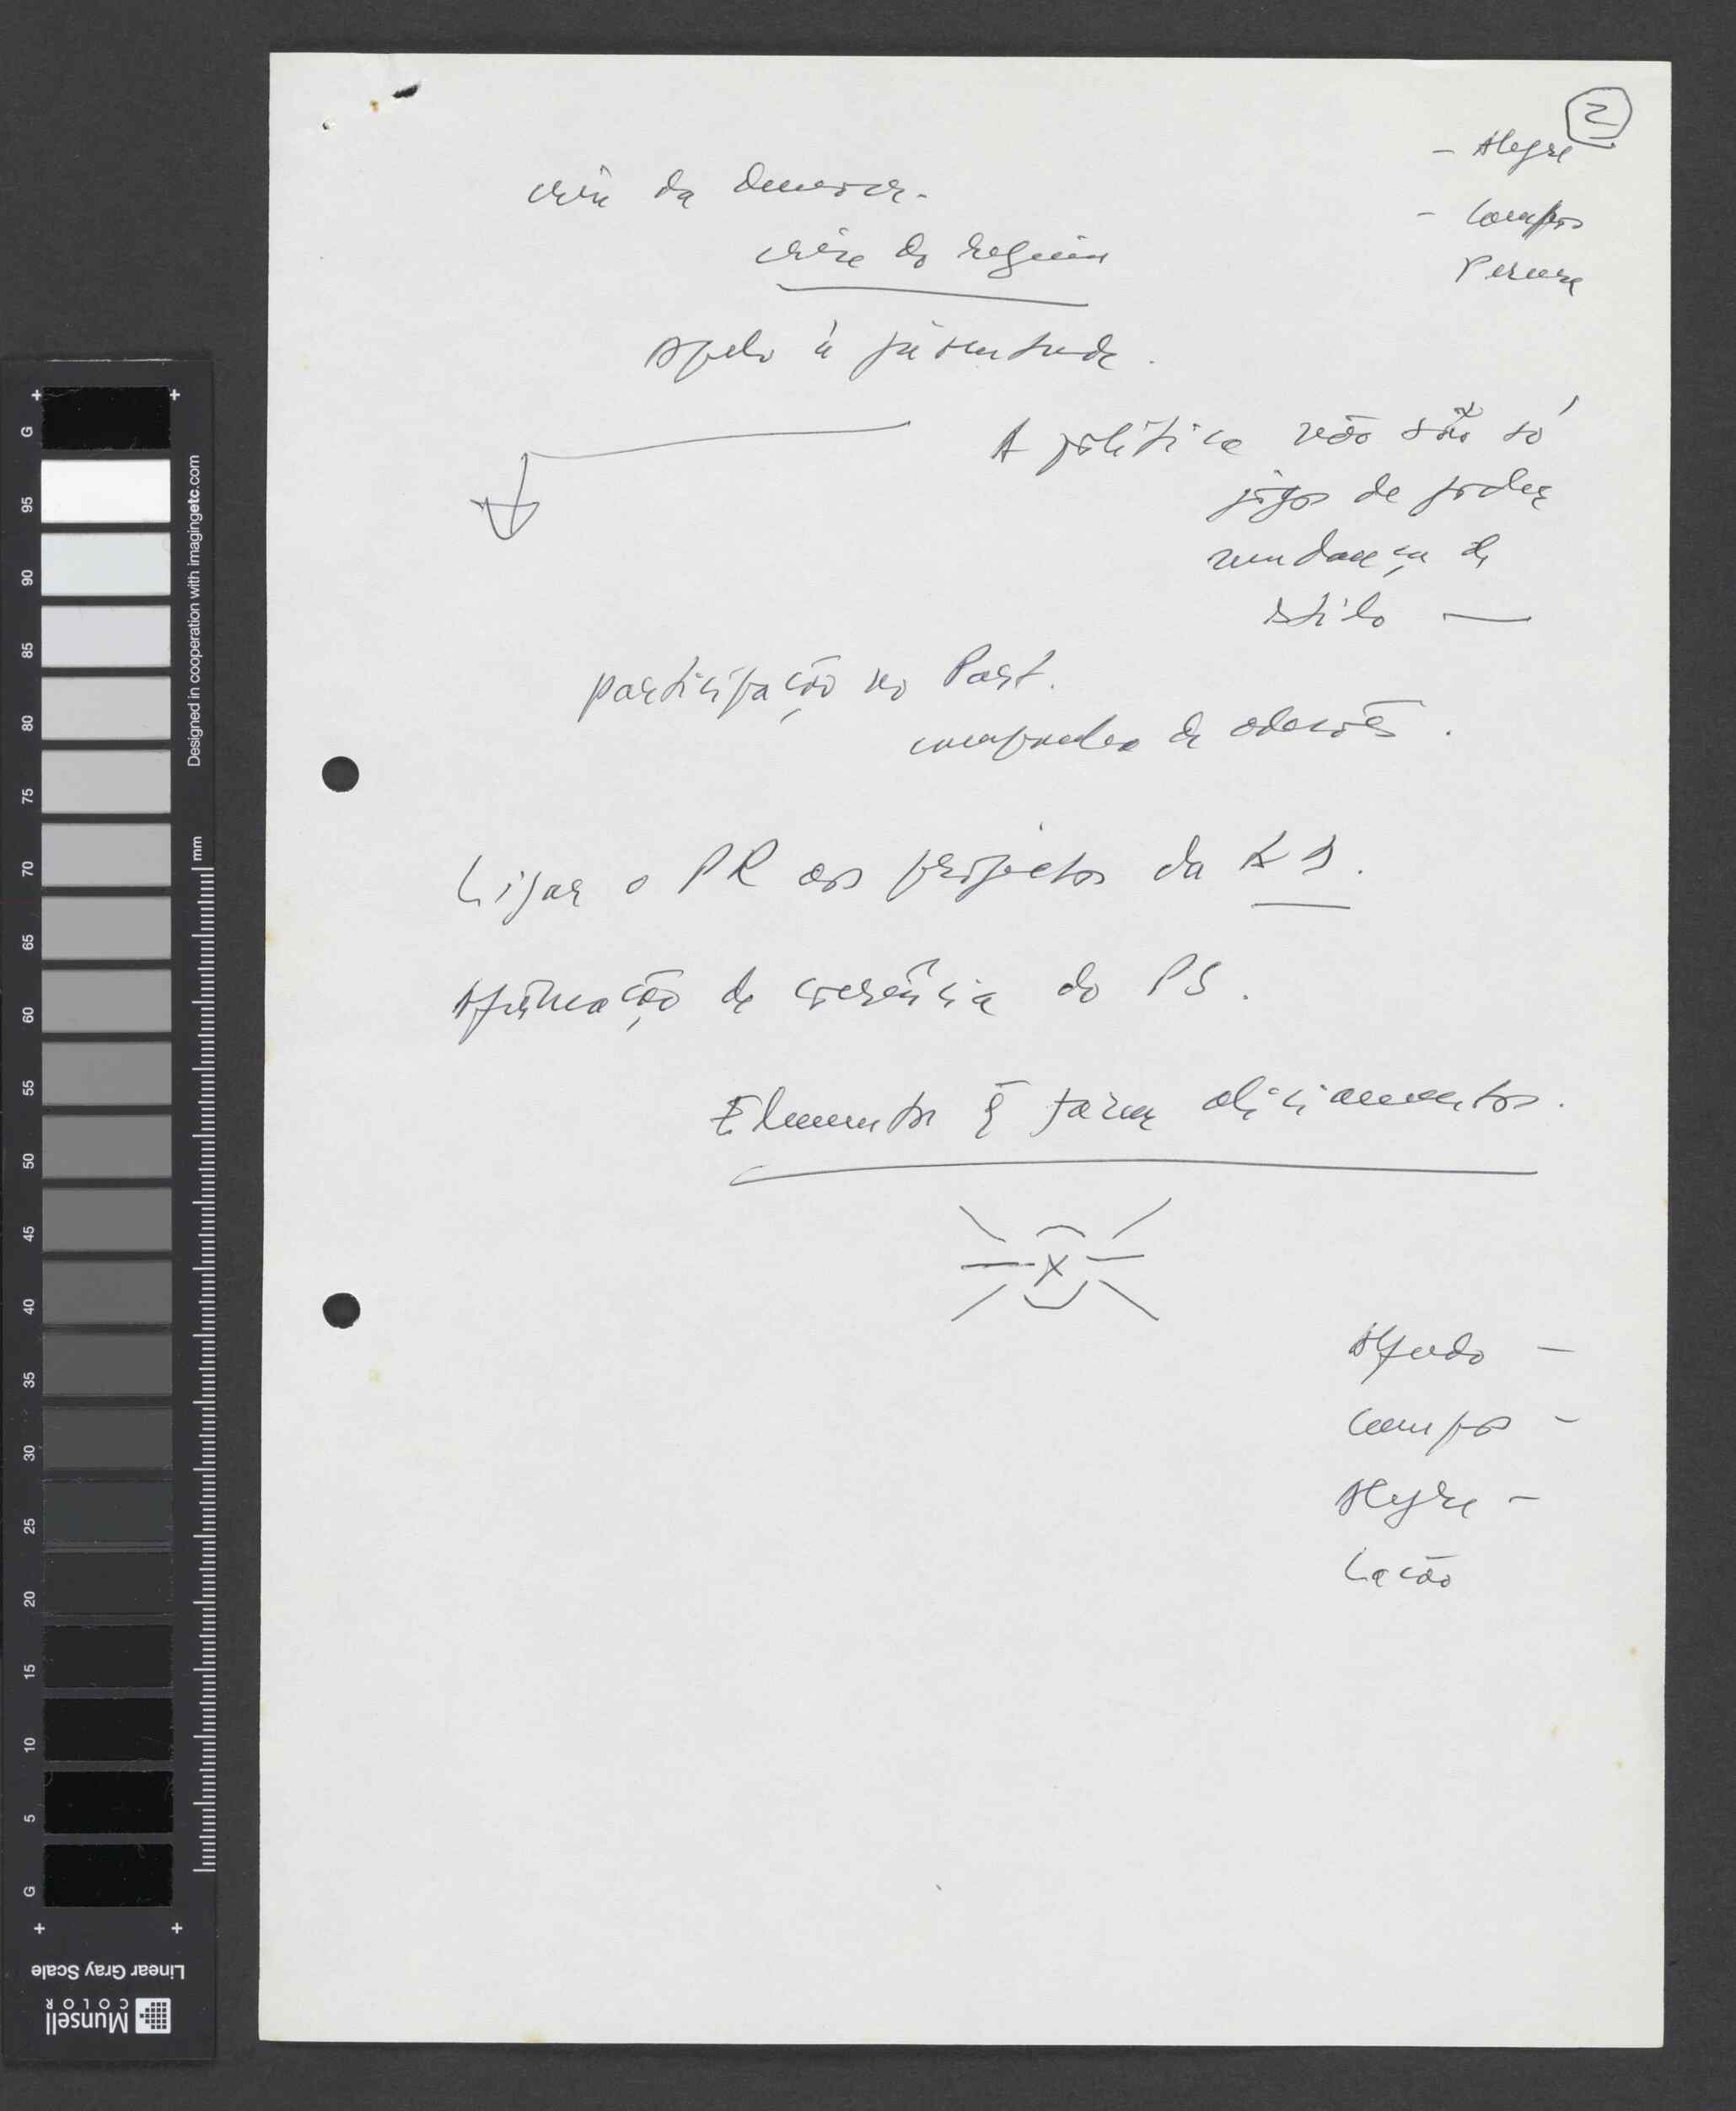 2
- Alegre
- Campos
Pereira
crise da democr.
crise do regime
Apelo à juventude.
A política não são só
jogos de poder
mudança de
estilo —
participação no Part.
campanha de adesões.
Ligar o PR aos projectos da AD.
Afirmação de coerência do PS.
Elementos q̃ fazem aliciamentos.
X
Alfredo -
Campos -
Alegre -
Cação
G
95
90
85
80
75
70
65
60
55
50
45
40
35
30
25
20
15
10
5
G
Designed in cooperation with imagingetc.com
mm
Linear Gray Scale
Munsell
COLOR